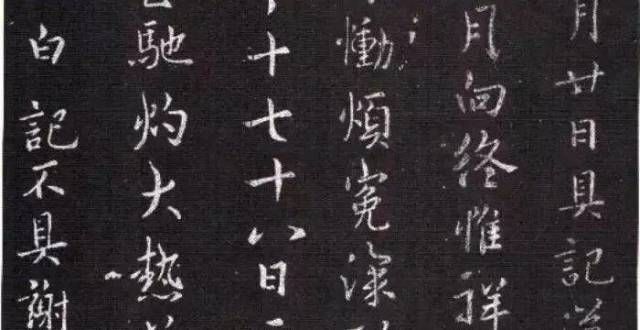 月廿日具記
月向終惟祥
慟煩冤深
十七十八日
馳灼大熱
白記不具謝